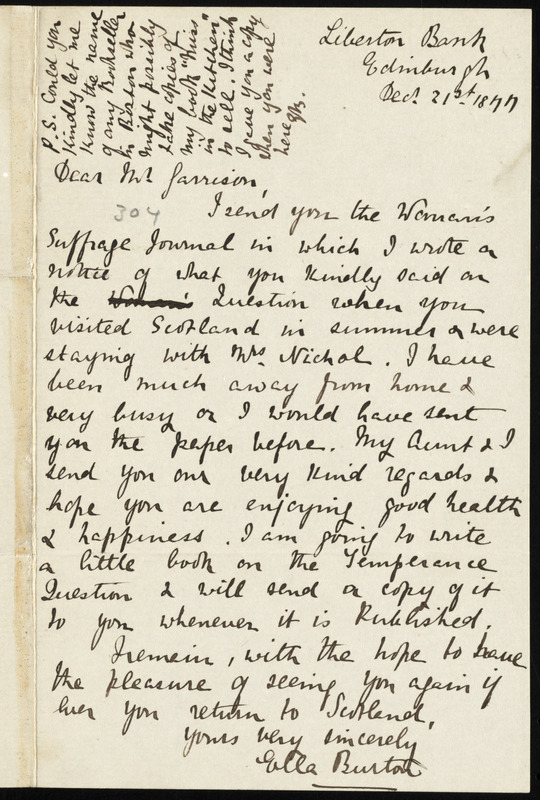 P.S. Could you
kindly let me
know the name
of any Bookseller
in Boston who
might possibly
take copies of
my book "Miss
in the Kitchen"
to sell. I think
I gave you a copy
when you were
here
Liberton Bank
Edinburgh
Decr. 21st 1877
Dear Mr. Garrison,
304
I send you the Woman's
Suffrage Journal in which I wrote a
notice of what you kindly said on
the Woman's Question when you
visited Scotland in summer & were
staying with Mrs. Nichol. I have
been much away from home &
very busy or I would have sent
you the paper before. My Aunt & I
send you our very kind regards &
hope you are enjoying good health
& happiness. I am going to write
a little book on the Temperance
Question & will send a copy of it
to you whenever it is Published.
I remain, with the hope to have
the pleasure of seeing you again if
ever you return to Scotland,
yours very sincerely
Ella Burton